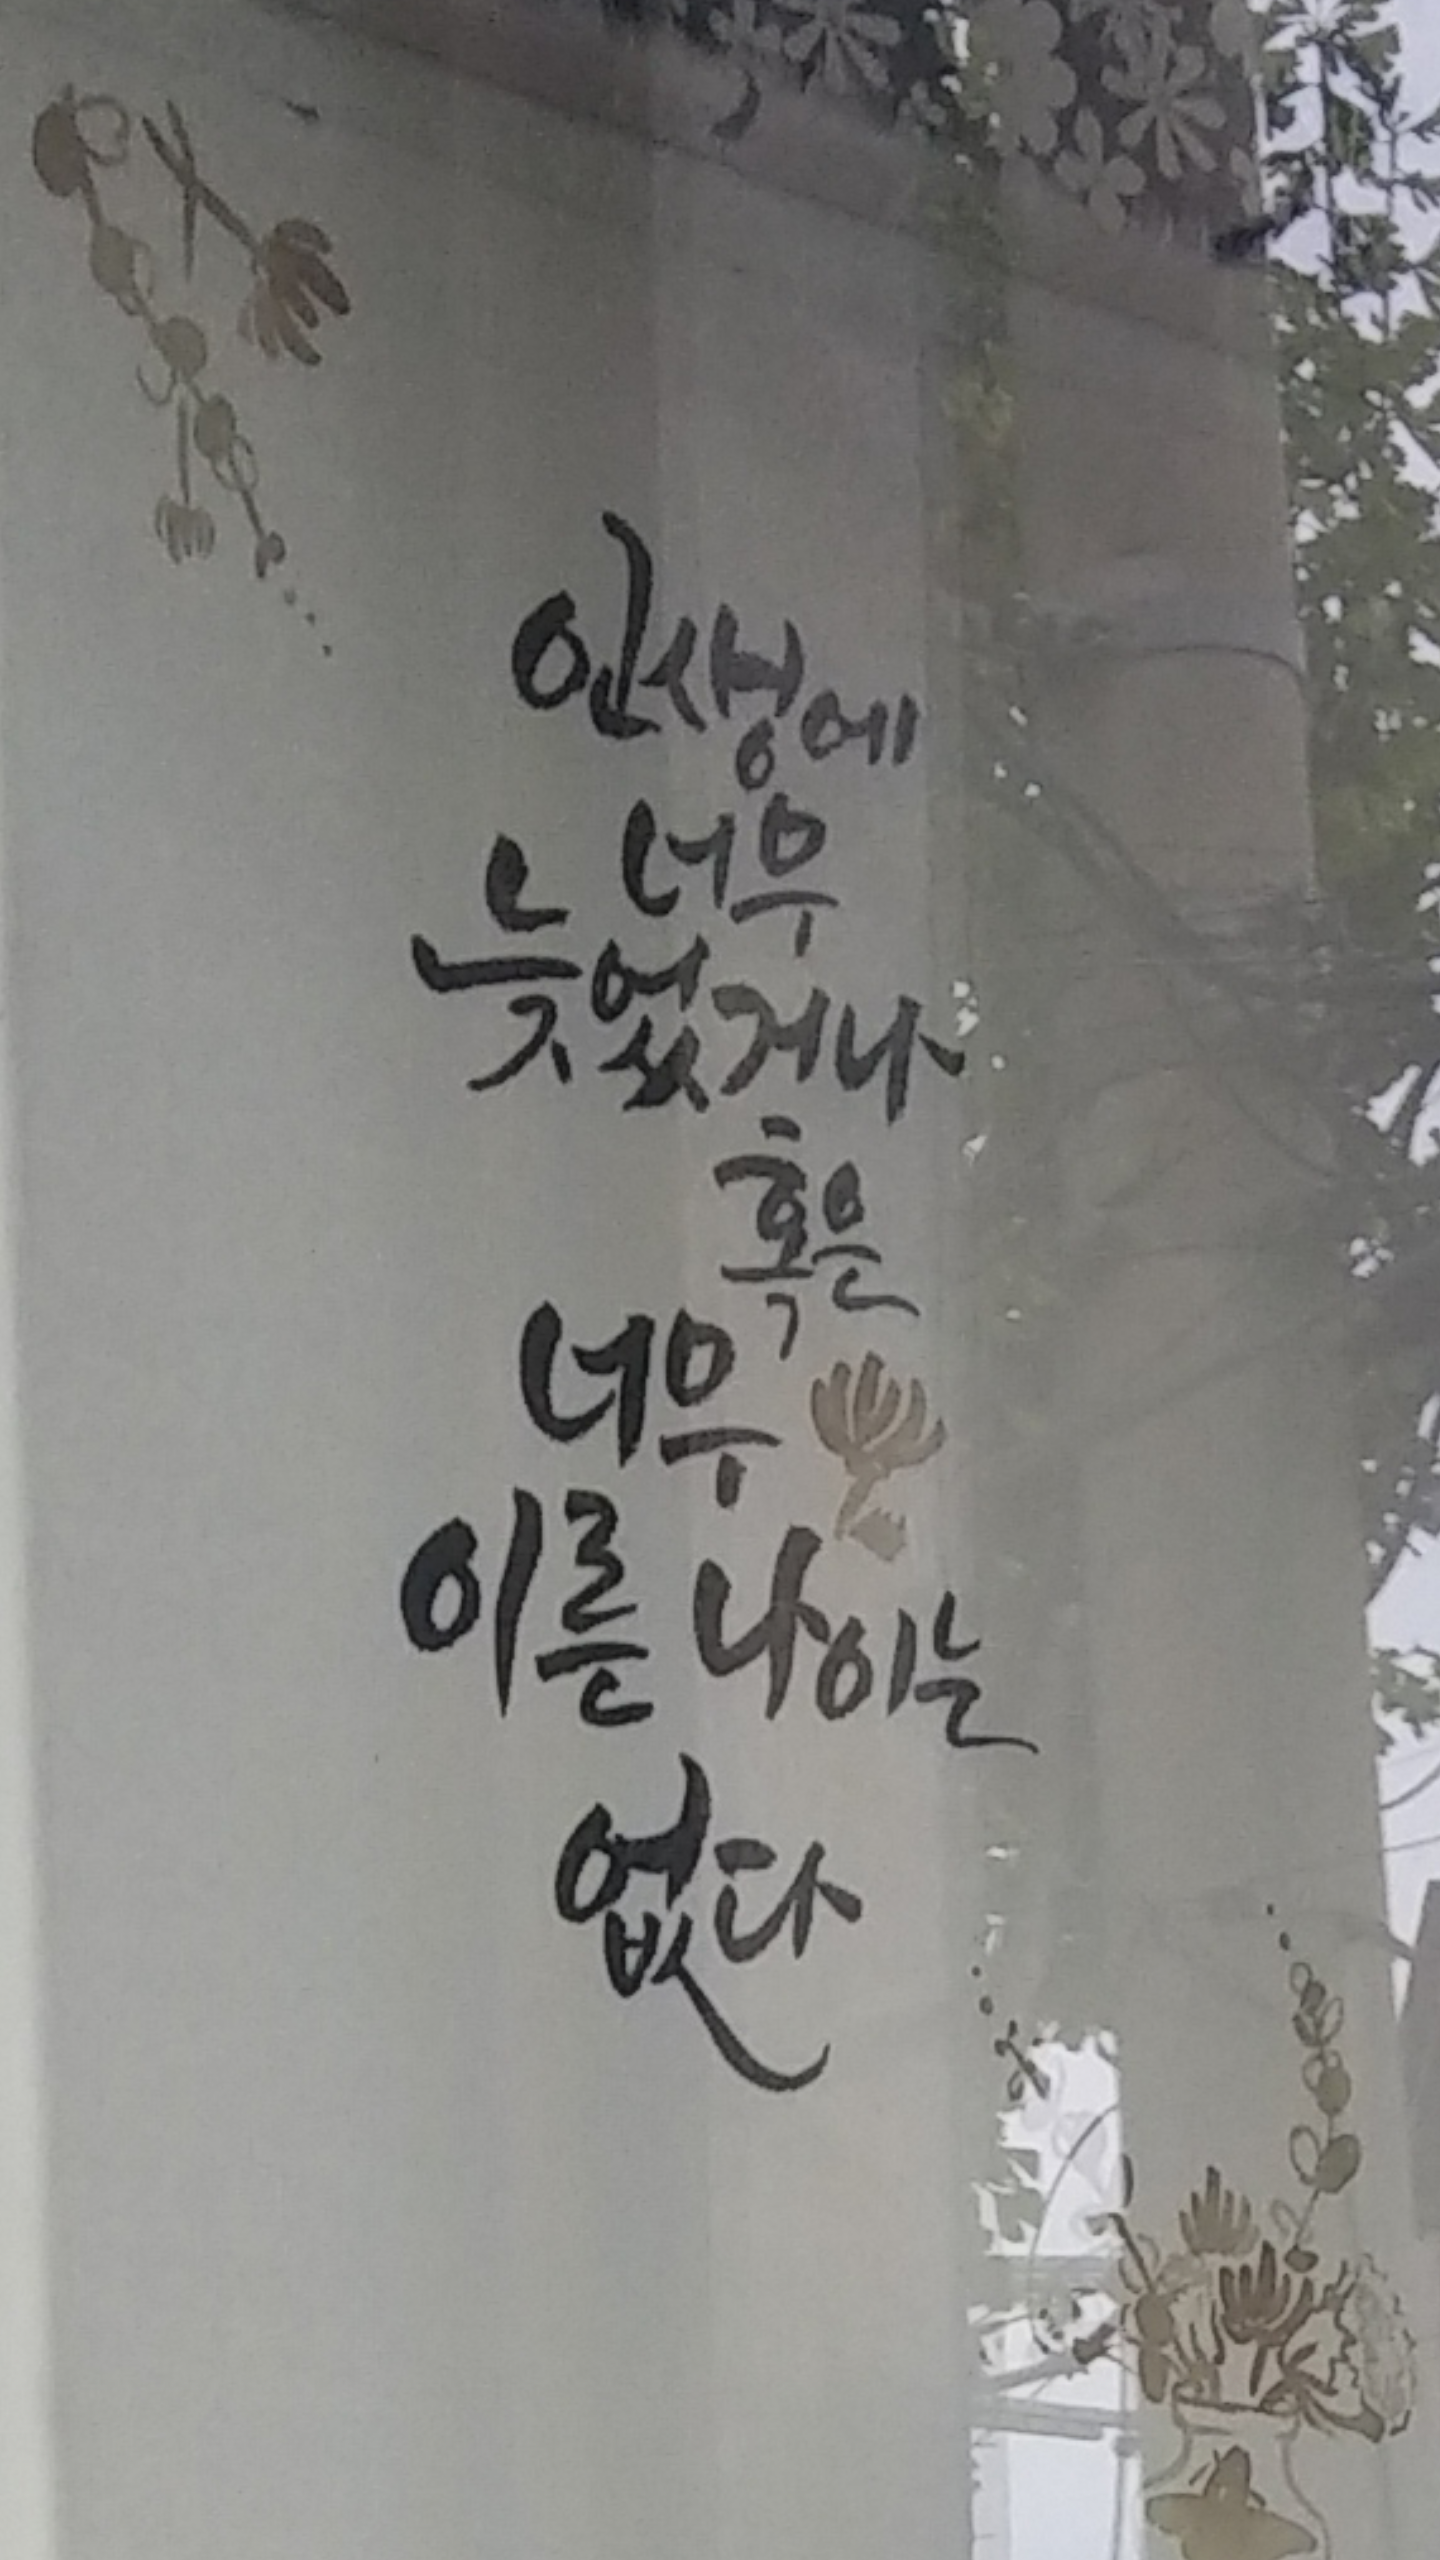 인생에
너무
늦었거나
혹은
너무
이른 나이는
없다